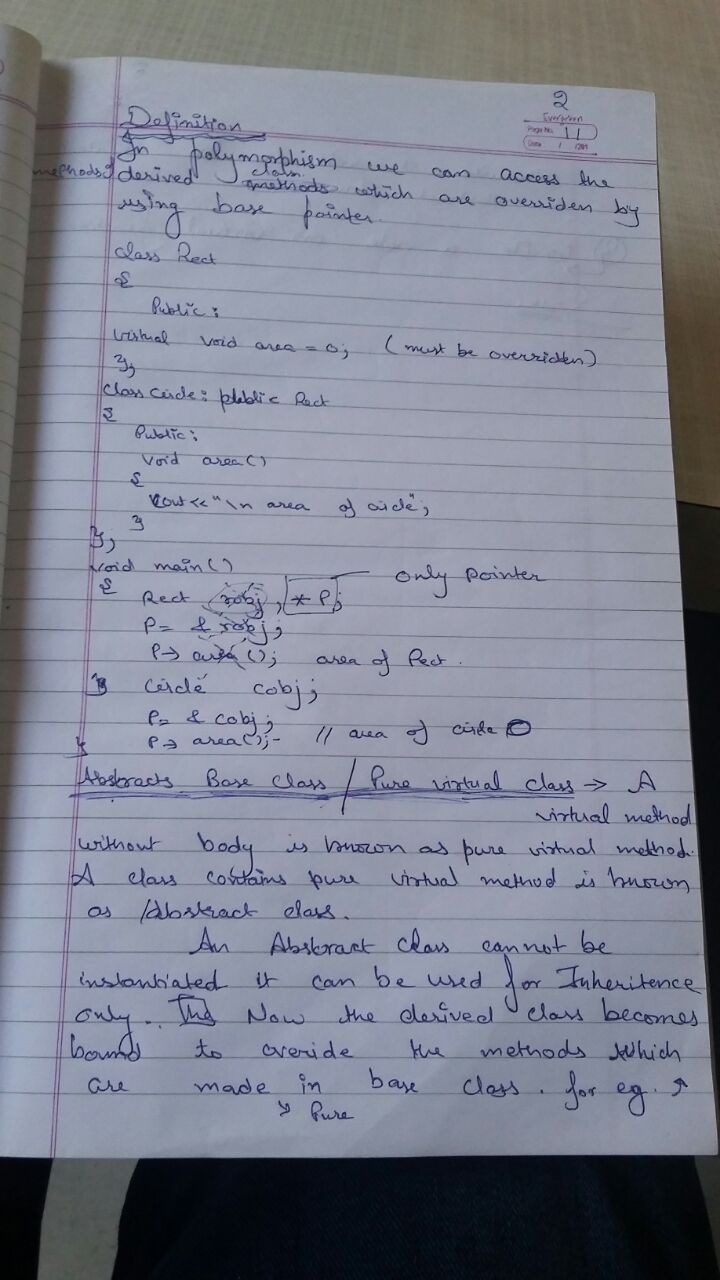 2
Evergreen
Page No. 11
Date / /201
Definition
In polymorphism we can access the
methods of derived class methods which are overriden by
using base pointer.
class Rect
{
Public:
virtual void area = 0; (must be overridden)
};
class Circle: public Rect
{
Public:
void area()
{
cout<<"\n area of circle";
}
};
void main()
{
Rect robj, *P; only pointer
P= & robj;
P→ area(); area of Rect.
Circle cobj;
P= & cobj;
P→ area(); // area of circle
}
Abstracts Base Class / Pure virtual class → A
virtual method
without body is known as pure virtual method.
A class contains pure virtual method is known
as Abstract class.
An Abstract class cannot be
instantiated it can be used for Inheritence
only. Now the derived class becomes
bound to overide the methods which
are made in base class. for eg. ↗
↘ Pure